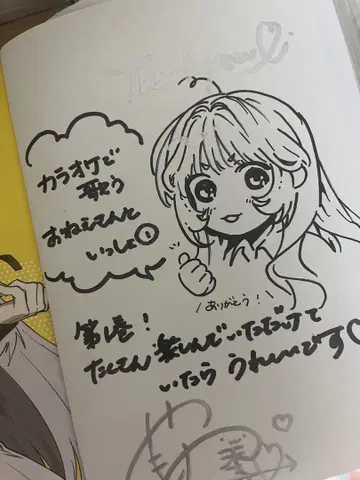 Thank you
カラオケで
歌う
おねえさんと
いっしょ①
\ありがとう!/
第1巻!
たくさん楽しんでいただけて
いたらうれしいです♡